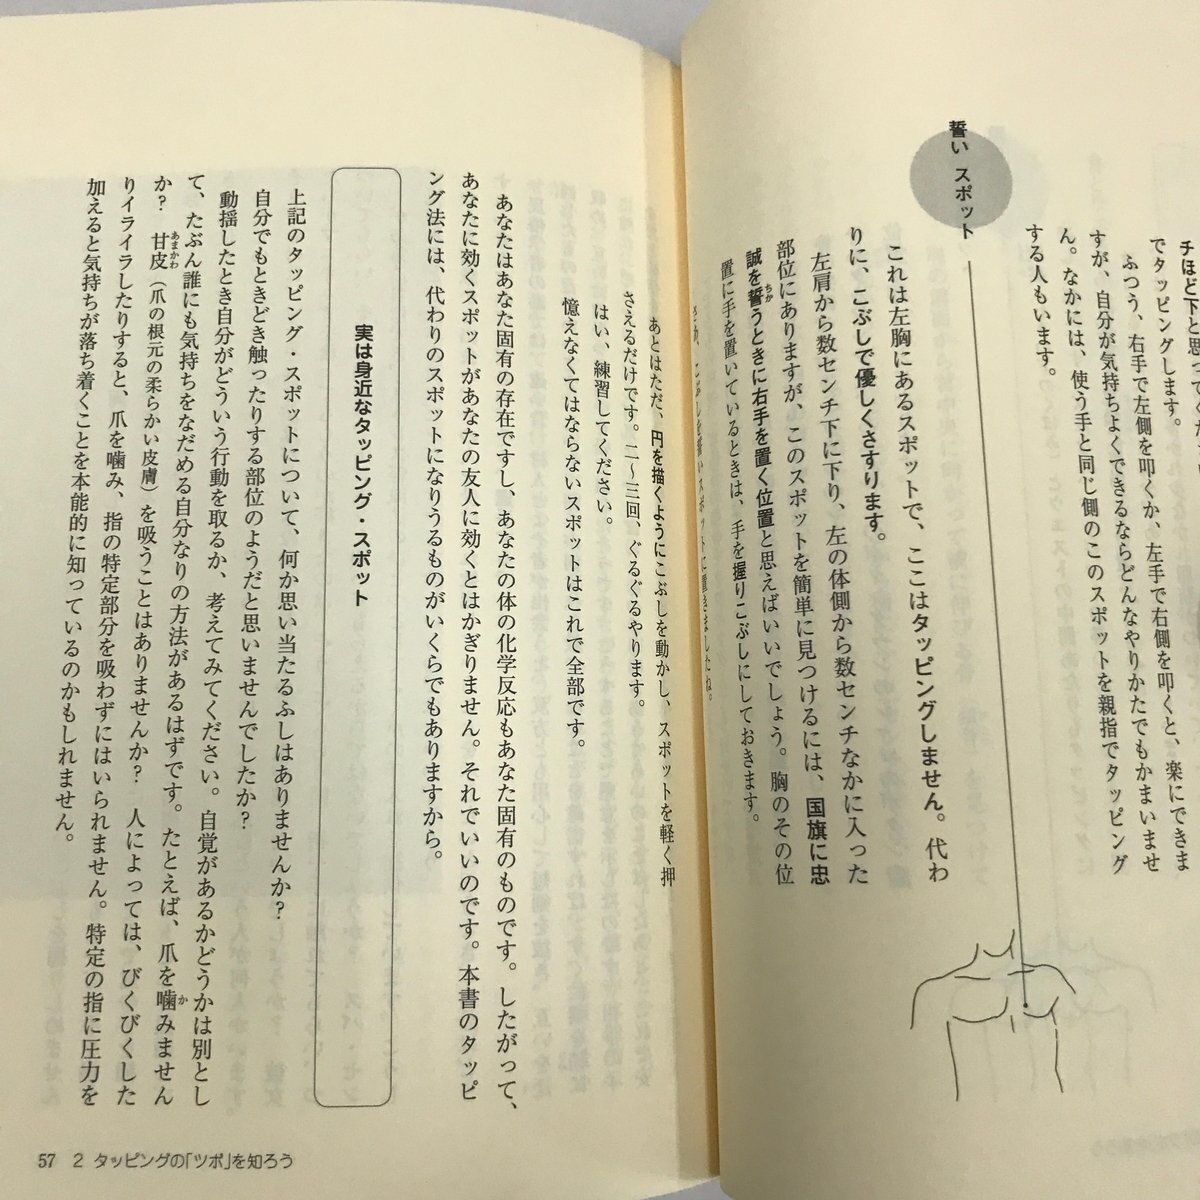 チほど下と思って
でタッピングします。
ふつう、右手で左側を叩くか、左手で右側を叩くと、楽にできま
すが、自分が気持ちよくできるならどんなやりかたでもかまいませ
ん。なかには、使う手と同じ側のこのスポットを親指でタッピング
する人もいます。
誓い スポット
これは左胸にあるスポットで、ここはタッピングしません。代わ
りに、こぶしで優しくさすります。
左肩から数センチ下に下り、左の体側から数センチなかに入った
部位にありますが、このスポットを簡単に見つけるには、国旗に忠
誠を誓うときに右手を置く位置と思えばいいでしょう。胸のその位
ちか
置に手を置いているときは、手を握りこぶしにしておきます。
こぶしを誓いスポットに置きましたね。
あとはただ、円を描くようにこぶしを動かし、スポットを軽く押
さえるだけです。二〜三回、ぐるぐるやります。
はい、練習してください。
憶えなくてはならないスポットはこれで全部です。
あなたはあなた固有の存在ですし、あなたの体の化学反応もあなた固有のものです。したがって、
あなたに効くスポットがあなたの友人に効くとはかぎりません。それでいいのです。本書のタッピ
ング法には、代わりのスポットになりうるものがいくらでもありますから。
実は身近なタッピング・スポット
上記のタッピング・スポットについて、何か思い当たるふしはありませんか?
自分でもときどき触ったりする部位のようだと思いませんでしたか?
動揺したとき自分がどういう行動を取るか、考えてみてください。自覚があるかどうかは別とし
て、たぶん誰にも気持ちをなだめる自分なりの方法があるはずです。たとえば、爪を噛みません
か
か? 甘皮(爪の根元の柔らかい皮膚)を吸うことはありませんか? 人によっては、びくびくした
あまかわ
りイライラしたりすると、爪を噛み、指の特定部分を吸わずにはいられません。特定の指に圧力を
加えると気持ちが落ち着くことを本能的に知っているのかもしれません。
57 2 タッピングの「ツボ」を知ろう